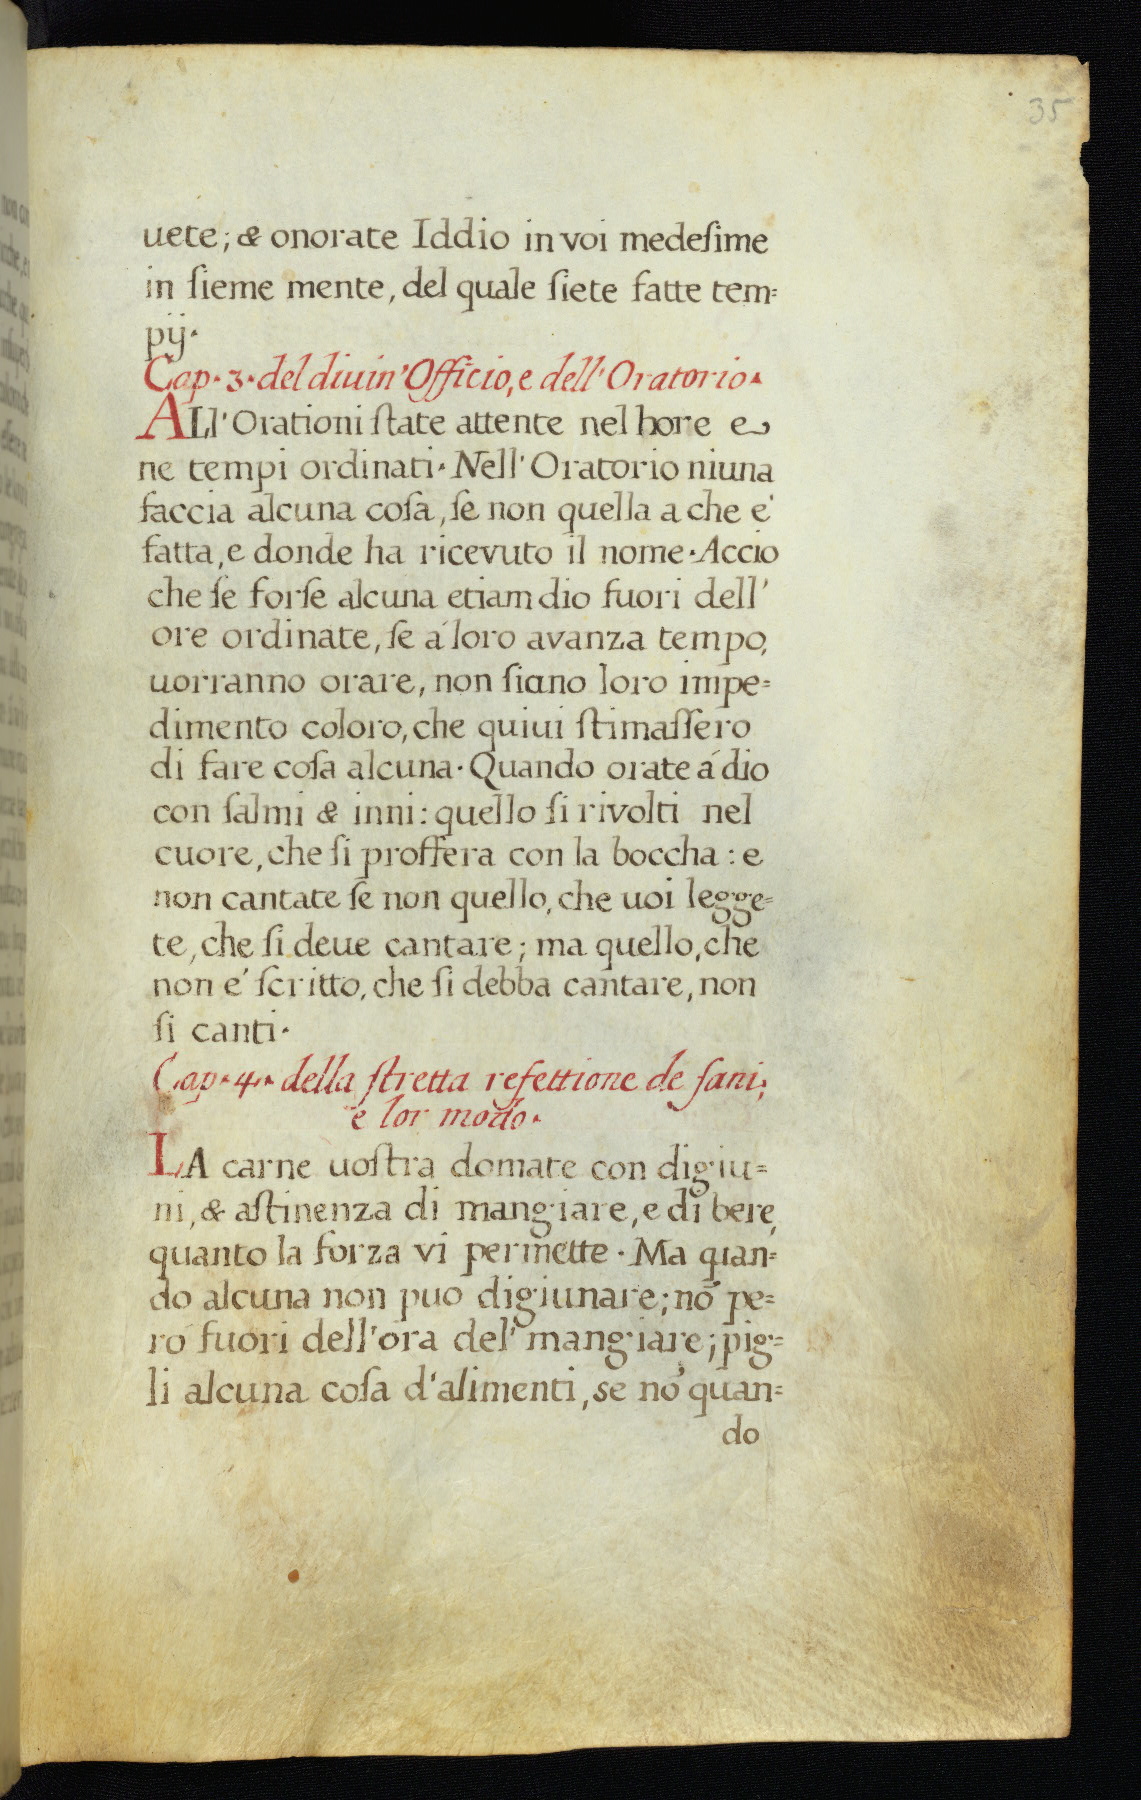 35
uete; & onorate Iddio in voi medeſime
in ſieme mente, del quale ſiete fatte tem=
pij·
Cap· 3· del diuin' Officio, e dell' Oratorio·
ALl' Orationi ſtate attente nel hore e
ne tempi ordinati· Nell' Oratorio niuna
faccia alcuna coſa, ſe non quella a che e'
fatta, e donde ha ricevuto il nome· Accio
che ſe forſe alcuna etiam dio fuori dell'
ore ordinate, ſe a' loro avanza tempo,
uorranno orare, non ſiano loro impe=
dimento coloro, che quiui ſtimaſſero
di fare coſa alcuna· Quando orate a' dio
con ſalmi & inni: quello ſi rivolti nel
cuore, che ſi proffera con la boccha: e
non cantate ſe non quello, che uoi legge=
te, che ſi deue cantare; ma quello, che
non e' ſcritto, che ſi debba cantare, non
ſi canti·
Cap· 4· della ſtretta refettione de ſani,
e lor modo·
LA carne uoſtra domate con digiu=
ni, & aſtinenza di mangiare, e di bere,
quanto la forza vi permette· Ma quan=
do alcuna non puo digiunare; nō pe=
ro' fuori dell'ora del' mangiare; pig=
li alcuna coſa d'alimenti, se nō quan=
do